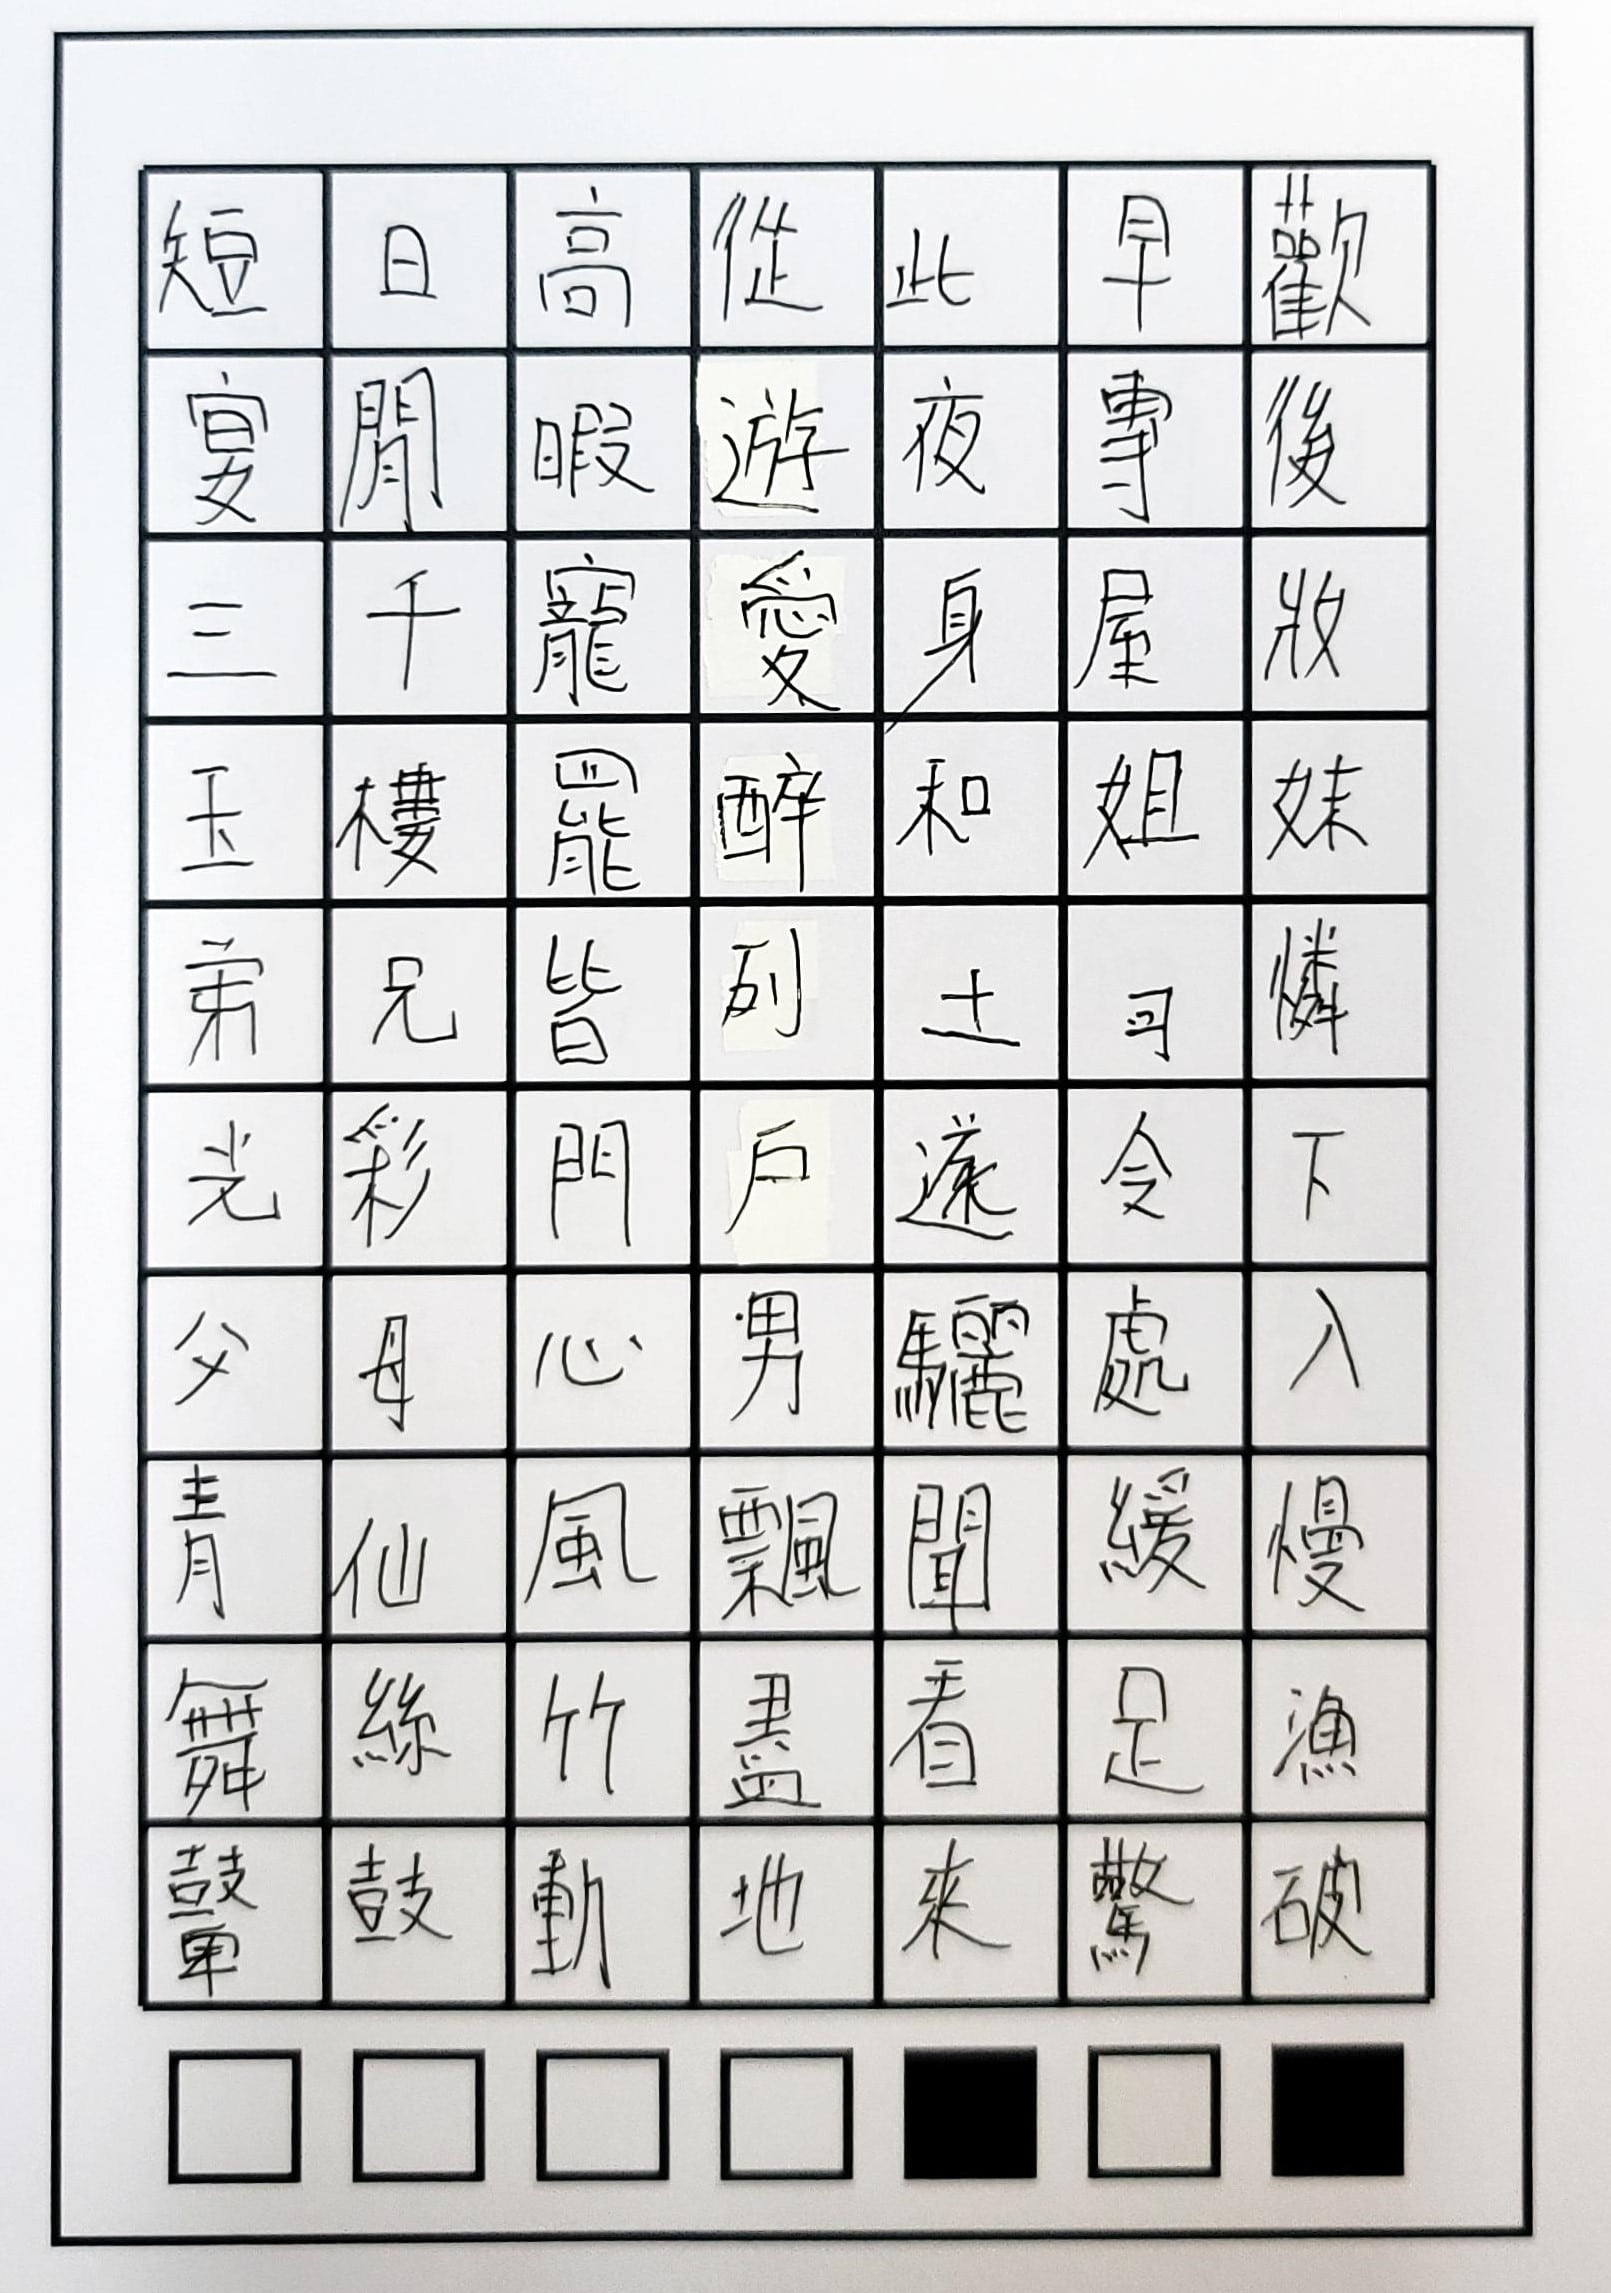 短日高從此早歡
宴閒暇遊夜專後
三千寵愛身屋妝
玉樓罷醉和姐妹
弟兄皆列土憐
光彩門戶遂令下
父母心男驪處入
青仙風飄聞緩慢
舞絲竹盡看足漁
鼙鼓動地來驚破